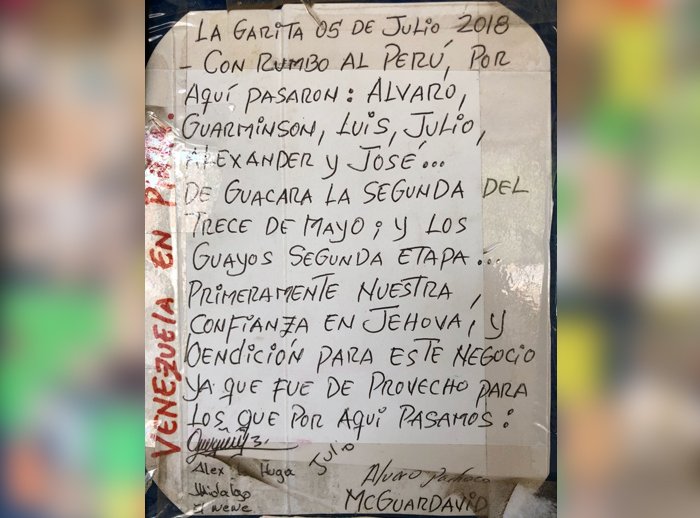 LA GARITA 05 DE JULIO 2018
- CON RUMBO AL PERÚ, POR
AQUÍ PASARON: ALVARO,
GUARMINSON, LUIS, JULIO,
ALEXANDER Y JOSÉ...
DE GUACARA LA SEGUNDA DEL
TRECE DE MAYO; Y LOS
GUAYOS SEGUNDA ETAPA...
PRIMERAMENTE NUESTRA
CONFIANZA EN JEHOVA, Y
BENDICIÓN PARA ESTE NEGOCIO
YA QUE FUE DE PROVECHO PARA
LOS QUE POR AQUÍ PASAMOS:
Alex Huga Julio
Hidalgo
El nene
Alvaro Pacheco
McGUARDAVID
VENEZUELA EN